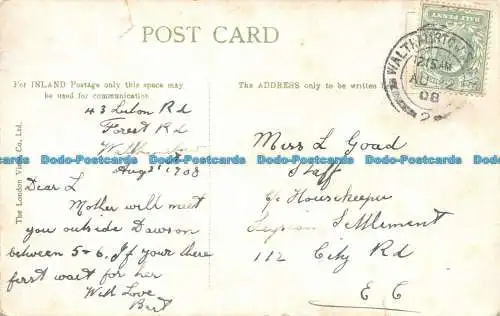 POST CARD
For INLAND Postage only this space may
be used for communication
The ADDRESS only to be written
The London View Co., Ltd.
WALTHAMSTOW
12.15 AM
08
2
HALF PENNY
43 Luton Rd
Forest Rd
Walthamstow
Aug 21 1908
Dear L
Mother will meet
you outside Dawson
between 5 & 6. If your there
first wait for her
With Love
Bert
Miss L Goad
Staff
c/o Housekeeper
Leysian Settlement
112 City Rd
E C
Dodo-Postcards Dodo-Postcards Dodo-Postcards Dodo-Postcards